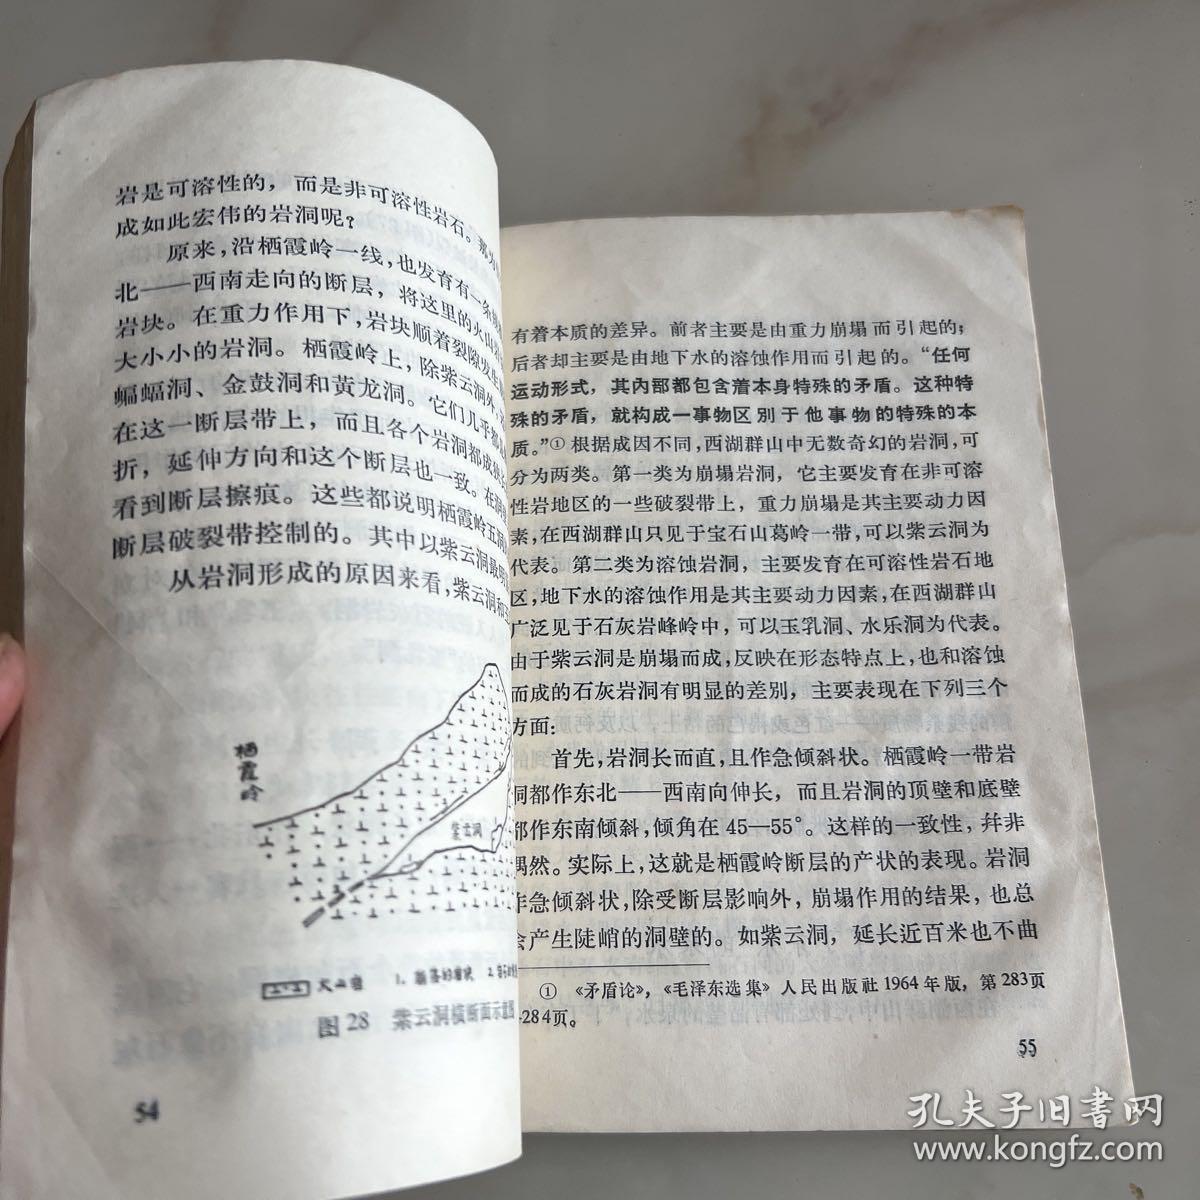 岩是可溶性的，而是非可溶性岩石。那为
成如此宏伟的岩洞呢？
原来，沿栖霞岭一线，也发育有一条
北——西南走向的断层，将这里的火山
岩块。在重力作用下，岩块顺着裂隙发生
大小小的岩洞。栖霞岭上，除紫云洞外，
蝙蝠洞、金鼓洞和黄龙洞。它们几乎都
在这一断层带上，而且各个岩洞都成
折，延伸方向和这个断层也一致。在洞
看到断层擦痕。这些都说明栖霞岭五洞
断层破裂带控制的。其中以紫云洞最明
从岩洞形成的原因来看，紫云洞和
栖霞岭
紫云洞
火山岩 1. 崩落的岩块 2.
图28 紫云洞横断面示意图
54
有着本质的差异。前者主要是由重力崩塌而引起的；
后者却主要是由地下水的溶蚀作用而引起的。“任何
运动形式，其内部都包含着本身特殊的矛盾。这种特
殊的矛盾，就构成一事物区别于他事物的特殊的本
质。”①根据成因不同，西湖群山中无数奇幻的岩洞，可
分为两类。第一类为崩塌岩洞，它主要发育在非可溶
性岩地区的一些破裂带上，重力崩塌是其主要动力因
素，在西湖群山只见于宝石山葛岭一带，可以紫云洞为
代表。第二类为溶蚀岩洞，主要发育在可溶性岩石地
区，地下水的溶蚀作用是其主要动力因素，在西湖群山
广泛见于石灰岩峰岭中，可以玉乳洞、水乐洞为代表。
由于紫云洞是崩塌而成，反映在形态特点上，也和溶蚀
而成的石灰岩洞有明显的差别，主要表现在下列三个
方面：
首先，岩洞长而直，且作急倾斜状。栖霞岭一带岩
洞都作东北——西南向伸长，而且岩洞的顶壁和底壁
都作东南倾斜，倾角在45—55°。这样的一致性，并非
偶然。实际上，这就是栖霞岭断层的产状的表现。岩洞
作急倾斜状，除受断层影响外，崩塌作用的结果，也总
会产生陡峭的洞壁的。如紫云洞，延长近百米也不曲
① 《矛盾论》，《毛泽东选集》人民出版社1964年版，第283页
-284页。
55
孔夫子旧書网
www.kongfz.com